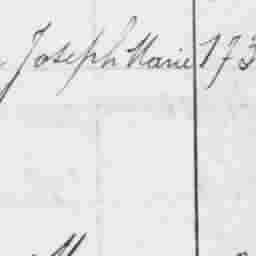 Joseph Marie 173